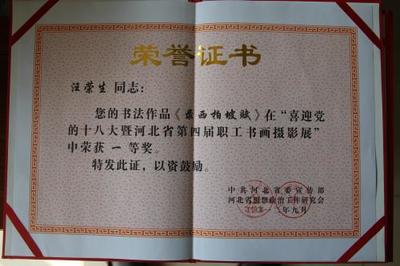 荣誉证书
汪荣生 同志：
您的书法作品《西柏坡赋》在“喜迎党
的十八大暨河北省第四届职工书画摄影展”
中荣获 一 等奖。
特发此证，以资鼓励。
中共河北省委宣传部
河北省思想政治工作研究会
二〇一二年九月